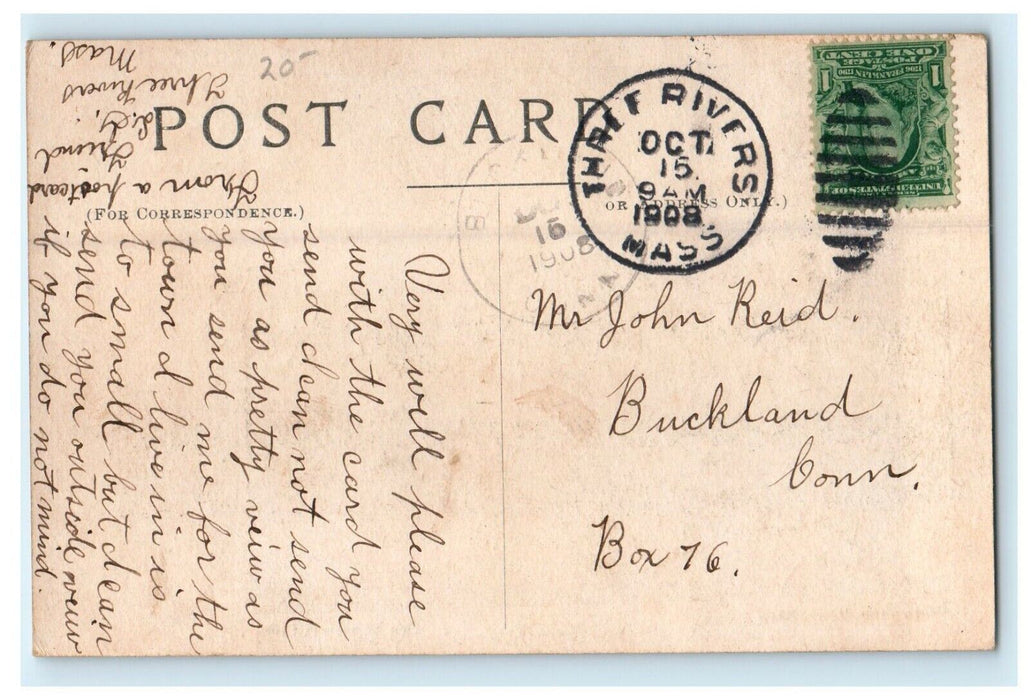 POST CARD
(FOR CORRESPONDENCE.)
OR ADDRESS ONLY.)
20-
THREE RIVERS
OCT
15
9 AM
1908
MASS
16
1908
ONE CENT
POSTAGE
1 1
FRANKLIN
Mr John Reid.
Buckland
Conn.
Box 76.
Very well please
with the card you
send d can not send
you as pretty veiw as
you send me for the
town d live in is
to small but d can
send you outside veiw
if you do not mind.
From a postcard
Friend
Three Rivers
Mass.